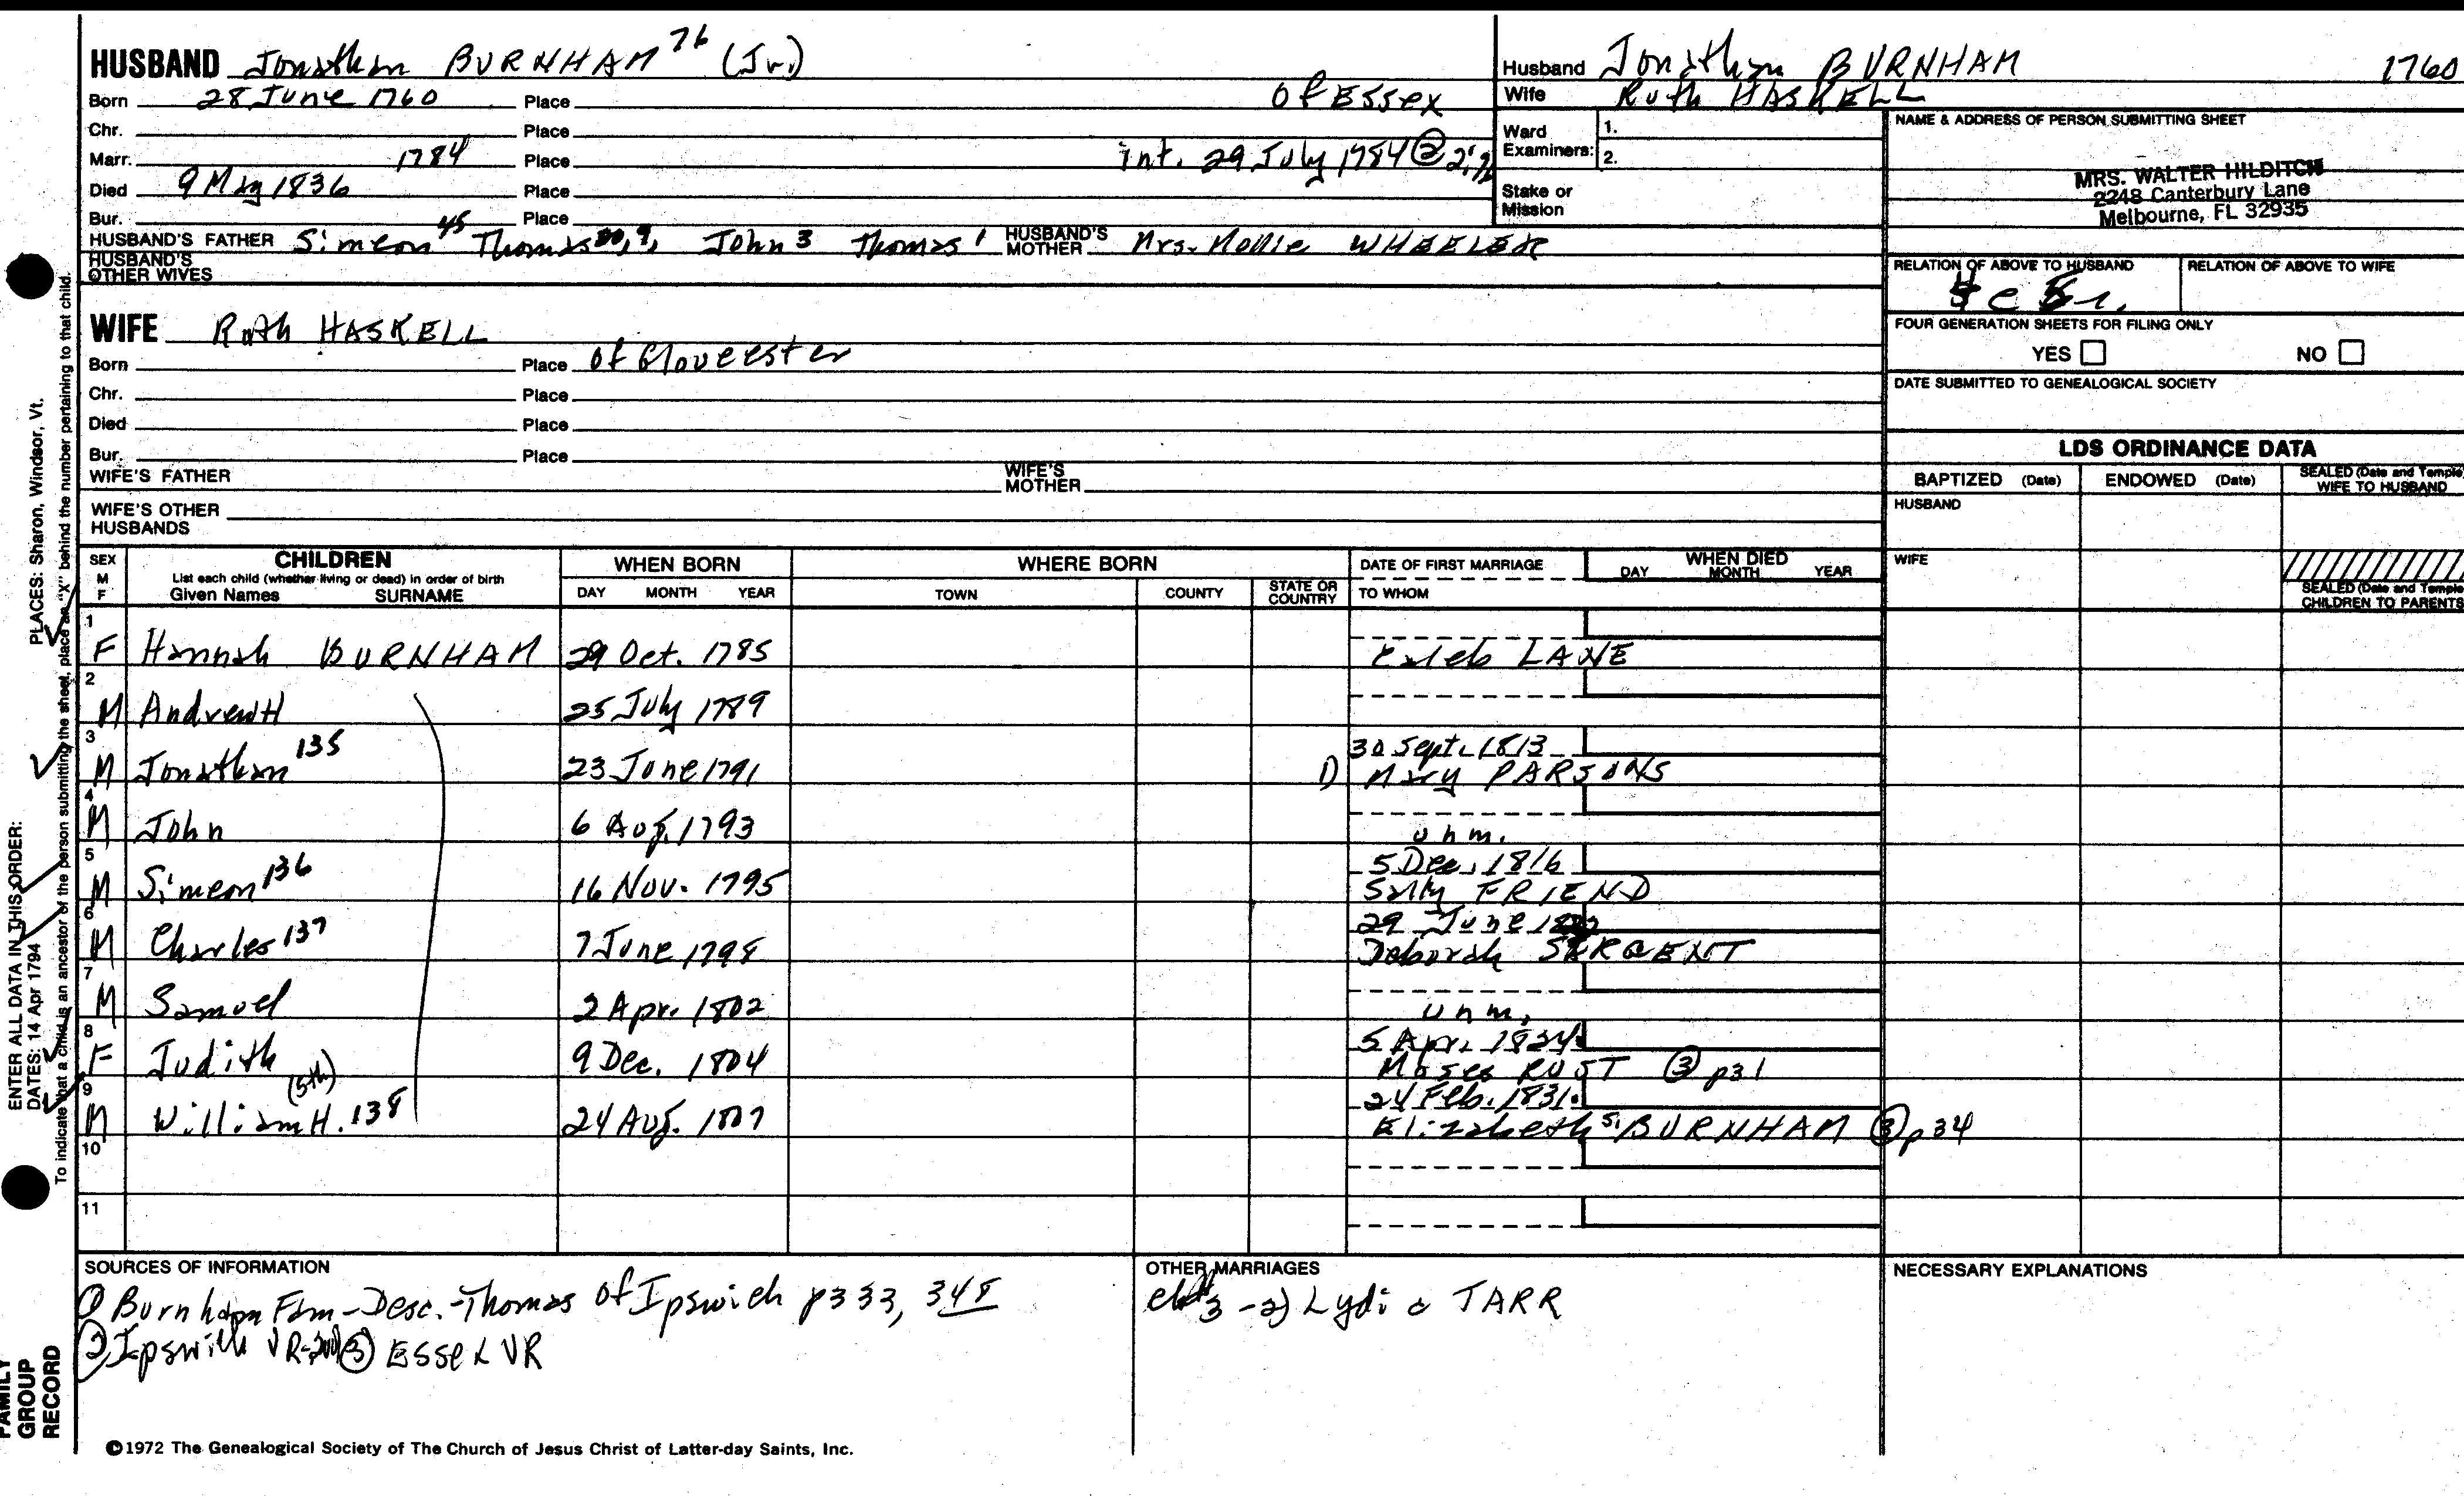 HUSBAND Jonathan BURNHAM 76 (Jr.)
Born 28 June 1760 Place of Essex
Chr. Place
Marr. 1784 Place int. 29 July 1784 ②
Died 9 May 1836 Place
Bur. Place
HUSBAND'S FATHER Simeon 45 Thomas John 3 Thomas 1 HUSBAND'S MOTHER Mrs. Mollie WHEELER
HUSBAND'S OTHER WIVES
WIFE Ruth HASKELL
Born Place of Gloucester
Chr. Place
Died Place
Bur. Place
WIFE'S FATHER WIFE'S MOTHER
WIFE'S OTHER HUSBANDS
Husband Jonathan BURNHAM 1760
Wife Ruth HASKELL
Ward Examiners: 1.
2.
Stake or Mission
NAME & ADDRESS OF PERSON SUBMITTING SHEET
MRS. WALTER HILDITCH
2248 Canterbury Lane
Melbourne, FL 32935
RELATION OF ABOVE TO HUSBAND RELATION OF ABOVE TO WIFE
FOUR GENERATION SHEETS FOR FILING ONLY
YES NO
DATE SUBMITTED TO GENEALOGICAL SOCIETY
LDS ORDINANCE DATA
BAPTIZED (Date) ENDOWED (Date) SEALED (Date and Temple) WIFE TO HUSBAND
HUSBAND
WIFE
SEALED (Date and Temple) CHILDREN TO PARENTS
SEX M F CHILDREN WHEN BORN WHERE BORN DATE OF FIRST MARRIAGE WHEN DIED
List each child (whether living or dead) in order of birth
Given Names SURNAME DAY MONTH YEAR TOWN COUNTY STATE OR COUNTRY TO WHOM DAY MONTH YEAR
1
F Hannah BURNHAM 29 Oct. 1785 Caleb LANE
2
M Andrew H 25 July 1789
3 30 Sept. 1813
M Jonathan 135 23 June 1791 1) Mary PARSONS
4
M John 6 Aug. 1793 unm.
5 5 Dec. 1816
M Simeon 136 16 Nov. 1795 Sally FRIEND
6 29 June
M Charles 137 7 June 1798 Deborah SARGENT
7
M Samuel 2 Apr. 1802 unm.
8 5 Apr. 1824
F Judith 9 Dec. 1804 Moses RUST ③ p31
9 (5th) 24 Feb. 1831
M William H. 138 24 Aug. 1807 Elizabeth S. BURNHAM ③ p34
10
11
SOURCES OF INFORMATION
① Burnham Fam-Desc.-Thomas of Ipswich p333, 348
② Ipswich VR ③ Essex VR
OTHER MARRIAGES
3 -2) Lydia TARR
NECESSARY EXPLANATIONS
©1972 The Genealogical Society of The Church of Jesus Christ of Latter-day Saints, Inc.
ENTER ALL DATA IN THIS ORDER:
DATES: 14 Apr 1794
PLACES: Sharon, Windsor, Vt.
To indicate that a child is an ancestor of the person submitting the sheet, place an "X" behind the number pertaining to that child.
FAMILY GROUP RECORD